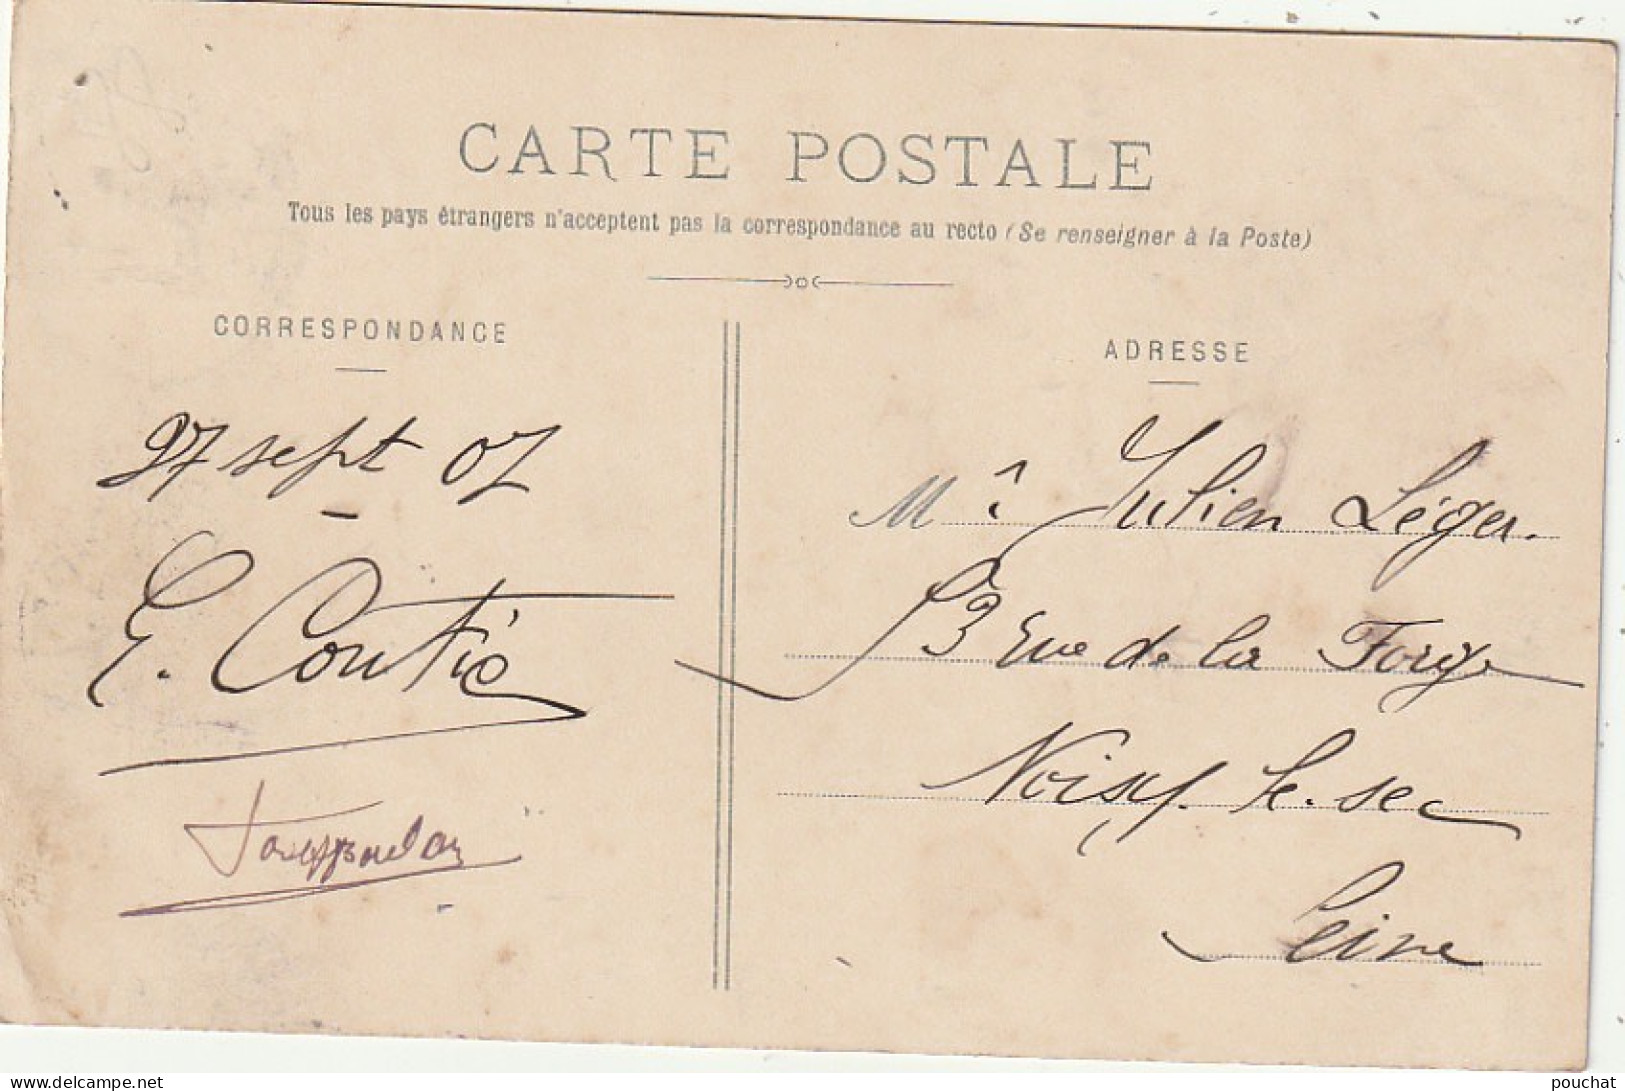 CARTE POSTALE
Tous les pays étrangers n'acceptent pas la correspondance au recto (Se renseigner à la Poste)
CORRESPONDANCE
27 sept 07
E. Coutié
ADRESSE
Mr Julien Léger.
53 rue de la Forge
Noisy-le-sec
Seine
delcampe.net
pouchat